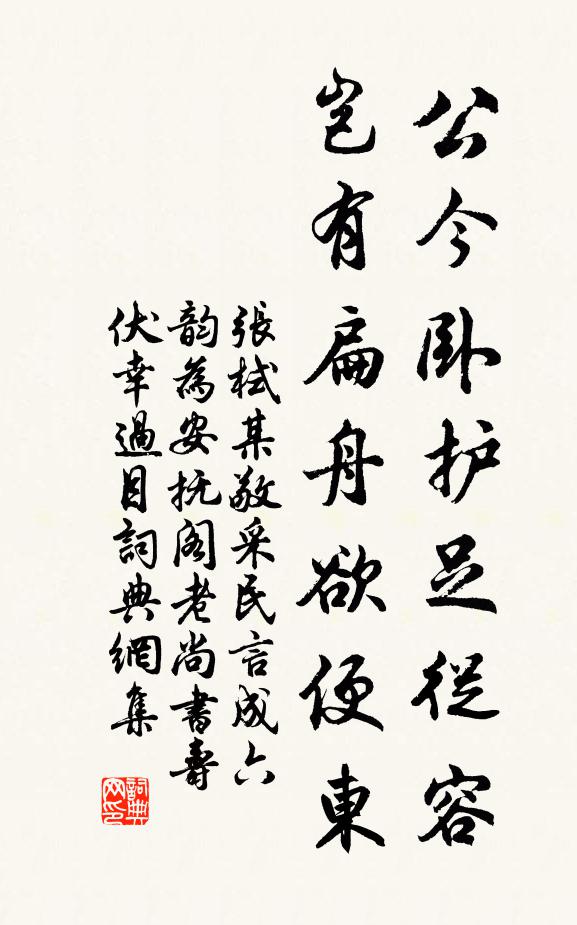 公今卧护足從容
岂有扁舟欲便東
張栻某敬采民言成六
韵為安抚阁老尚書壽
伏幸過目詞典網集
詞典
网印